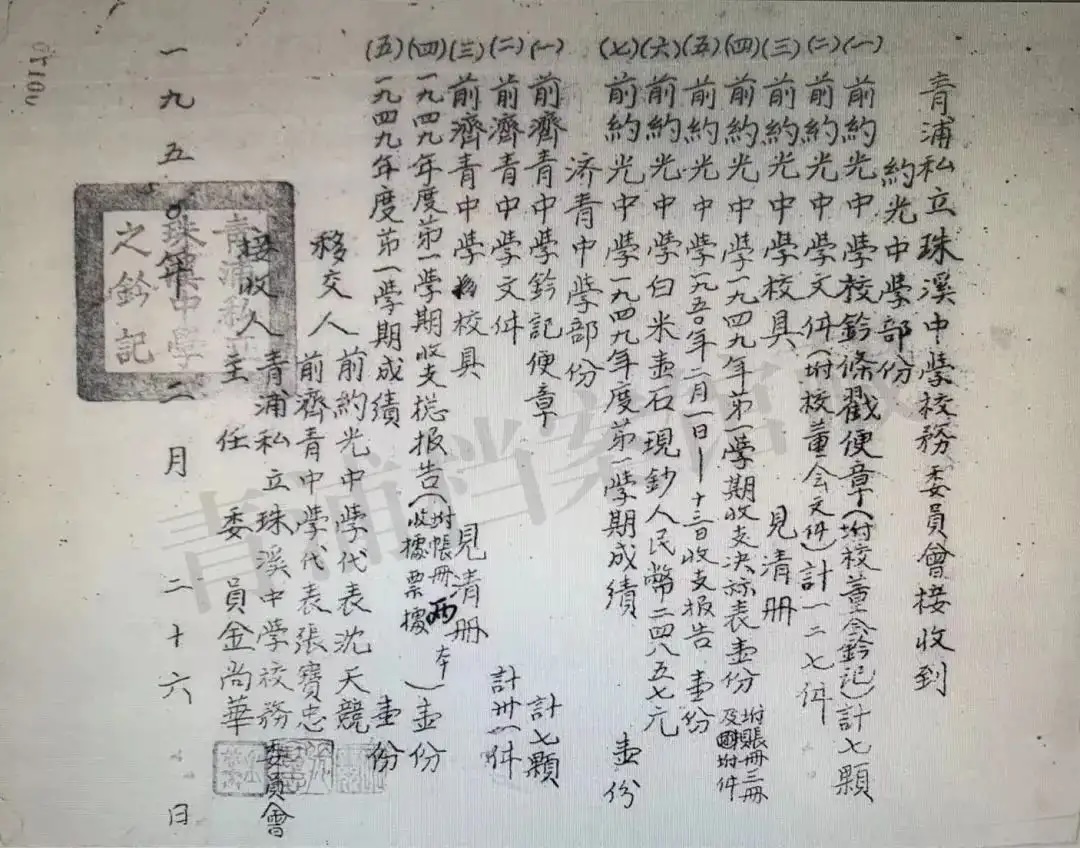 青浦私立珠溪中學校務委員會接收到
約光中學部份
(一)前約光中學校鈐條戳便章(坿校董会鈐記)計七顆
(二)前約光中學文件(坿校董会文件)計一二七件
(三)前約光中學校具 見清册
(四)前約光中學一九四九年第一學期收支决祘表壶份 坿賬冊三冊及坿件
(五)前約光中學一九五〇年二月一日—十三日收支报告 壶份
(六)前約光中學白米壶石現鈔人民幣二四八五七元
(七)前約光中學一九四九年度第一學期成績 壶份
济青中學部份
(一)前濟青中學鈐記便章 計七顆
(二)前濟青中學文件 計卅一件
(三)前濟青中學校具 見清册
(四)一九四九年度第一學期收支捴报告(坿帳冊两本收據票據)壶份
(五)一九四九年度第一學期成績 壶份
移交人 前約光中學代表沈天競
前濟青中學代表張寶忠
接收人 青浦私立珠溪中學校務委員會
主任委員金尚華
一九五〇年二月二十六日
青浦私立
珠溪中學
之鈐記
青浦档案馆藏
00170